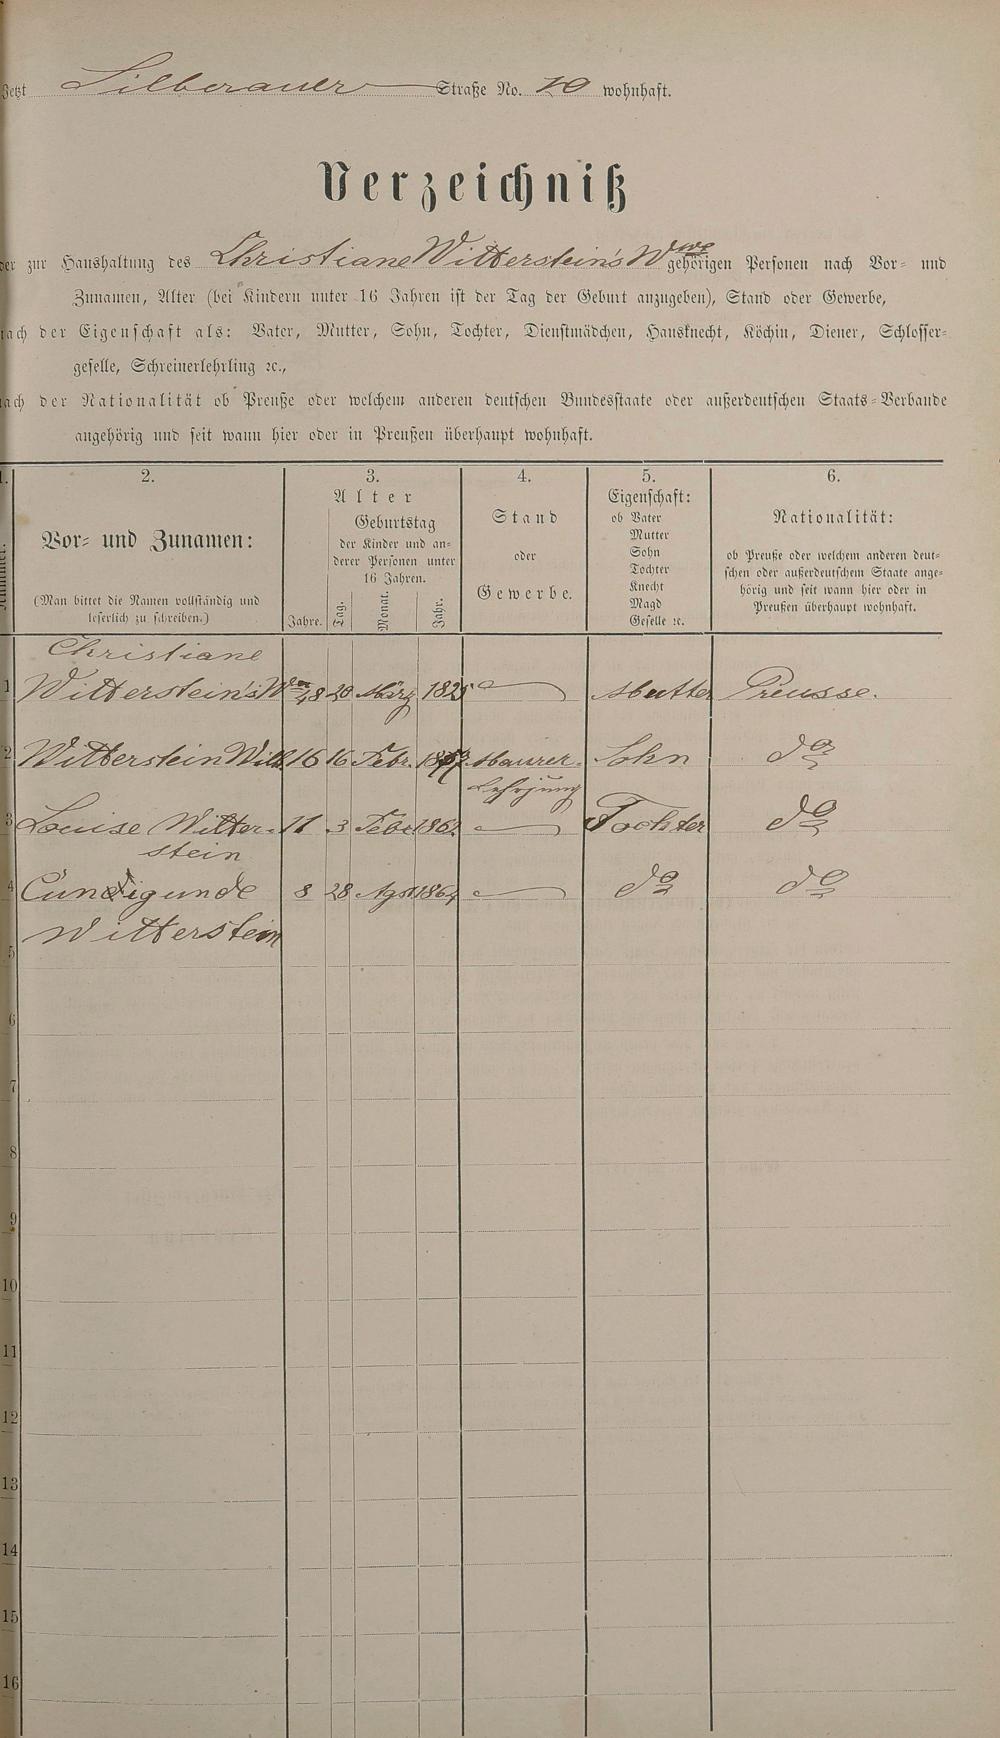 Jetzt Silberauer Straße No. 20 wohnhaft.
Verzeichniß
der zur Haushaltung des Christiane Witterstein's Wwe gehörigen Personen nach Vor- und
Zunamen, Alter (bei Kindern unter 16 Jahren ist der Tag der Geburt anzugeben), Stand oder Gewerbe,
nach der Eigenschaft als: Vater, Mutter, Sohn, Tochter, Dienstmädchen, Hausknecht, Köchin, Diener, Schlosser-
geselle, Schreinerlehrling ꝛc.,
nach der Nationalität ob Preuße oder welchem anderen deutschen Bundesstaate oder außerdeutschen Staats-Verbande
angehörig und seit wann hier oder in Preußen überhaupt wohnhaft.
1. 2. 3. 4. 5. 6.
Nummer.
Vor- und Zunamen:
(Man bittet die Namen vollständig und
leserlich zu schreiben.)
Alter
Jahre.
Geburtstag
der Kinder und an-
derer Personen unter
16 Jahren.
Tag. Monat. Jahr.
Stand
oder
Gewerbe.
Eigenschaft:
ob Vater
Mutter
Sohn
Tochter
Knecht
Magd
Geselle ꝛc.
Nationalität:
ob Preuße oder welchem anderen deut-
schen oder außerdeutschem Staate ange-
hörig und seit wann hier oder in
Preußen überhaupt wohnhaft.
Christiane
1 Witterstein's Wwe 48 20 März 1825 Mutter Preusse.
2 Witterstein Wilh. 16 16 Febr. Maurer- Sohn do
Lehrjung
3 Louise Witter- 11 3 Febr 1862 Tochter do
stein
4 Cunigunde 8 28 Agst 1864 do do
Witterstein
5
6
7
8
9
10
11
12
13
14
15
16